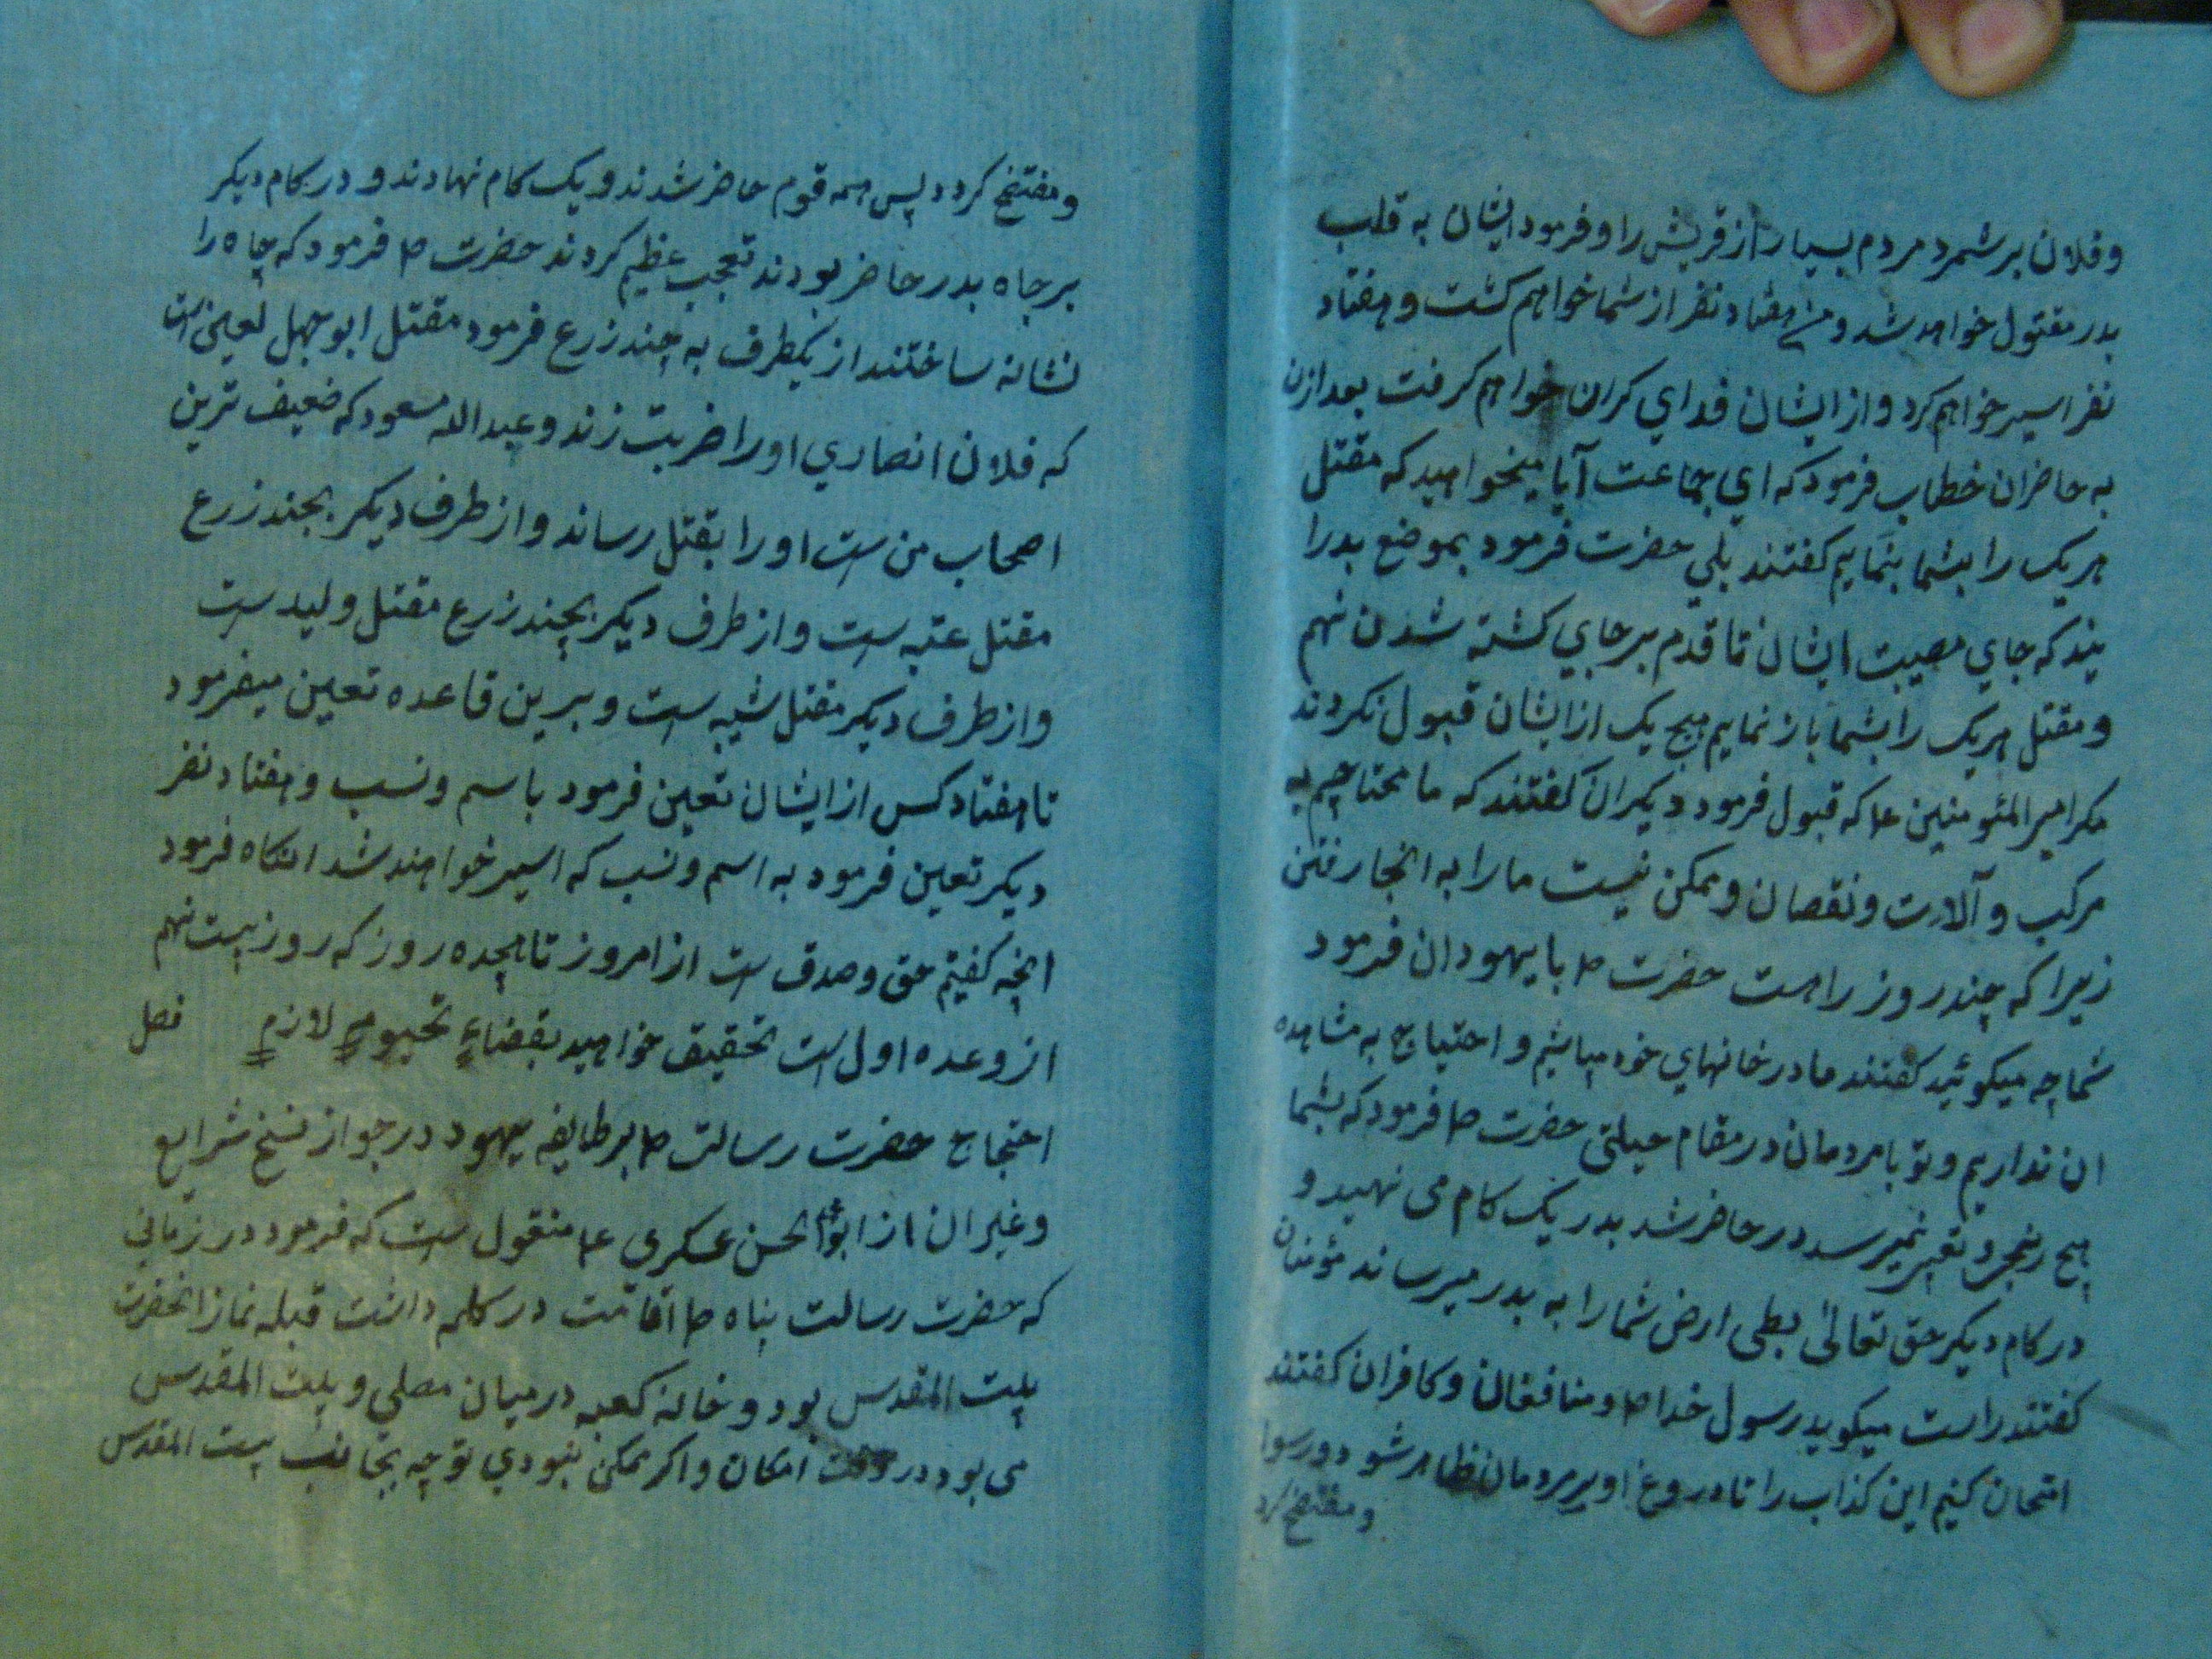 و فلان بر شمرد مردم بسیار از قریش را و فرمود ایشان به قلب
بدر مقتول خواهد شد و من هفتاد نفر از شما خواهم کشت و هفتاد
نفر اسیر خواهم کرد و از ایشان فدای کران خواهم کرفت بعد ازن
به حاضران خطاب فرمود که ای جماعت آیا میخواهید که مقتل
هریک را بشما بنمایم کفتند بلی حضرت فرمود بموضع بدر را
که جای مصیبت ایشان تا قدم بر جای کشته شدن نهم
و مقتل هریک را بشما باز نمایم هیچ یک از ایشان قبول نکردند
مکر امیر المئومنین ع که قبول فرمود دیکران کفتند که ما محتاجیم به
مرکب و آلات و نقصان و ممکن نیست ما را به انجا رفتن
زیرا که چند روز راهست حضرت ص با یهودان فرمود
شما چه میکوئید کفتند ما در خانهای خود میباشیم و احتیاج به مشاهده
ان نداریم و تو با مردمان در مقام حیلتی حضرت ص فرمود که بشما
هیچ رنج و نمیرسد در حاضر شد بدر یک کام می نهید و
در کام دیکر حق تعالی بطی ارض شما را به بدر میرساند مؤمنان
کفتند راست میکوید رسول خدا ص و منافقان و کافران کفتند
امتحان کنیم این کذاب را تا دروغ او بر مردمان ظاهر شود و رسوا
و مفتضح کرد
و مفتضح کردد پس همه قوم حاضر شدند و یک کام نهادند و در کام دیکر
بر چاه بدر حاضر بودند تعجب عظیم کردند حضرت ص فرمود که چاه را
نشانه ساختند از یکطرف به چند زرع فرمود مقتل ابو جهل لعین است
که فلان انصاری او را ضربت زند و عبد الله مسعود که ضعیف ترین
اصحاب من ست او را بقتل رساند و از طرف دیکر بچند زرع
مقتل عتبه ست و از طرف دیکر بچند زرع مقتل ولید ست
و از طرف دیکر مقتل شیبه ست و برین قاعده تعین میفرمود
تا هفتاد کس از ایشان تعین فرمود با سم و نسب و هفتاد نفر
دیکر تعین فرمود به اسم و نسب که اسیر خواهند شد انکاه فرمود
انچه کفتیم حق و صدق ست از امروز تا هجده روز که روز بیست نهم
از وعده اول ست تحقیق خواهید بقضاءٍ لازمٍ فصل
احتجاج حضرت رسالت ص بر طایفه یهود در جواز نسخ شرایع
و غیر ان از ابو الحسن عسکری ع منقول ست که فرمود در زمانی
که حضرت رسالت پناه ص اقامت در کله داشت قبله نماز انحضرت
بیت المقدس بود و خانه کعبه در میان مصلی و بیت المقدس
می بود در وقت امکان و اکر ممکن نبودی توجه بجانب بیت المقدس